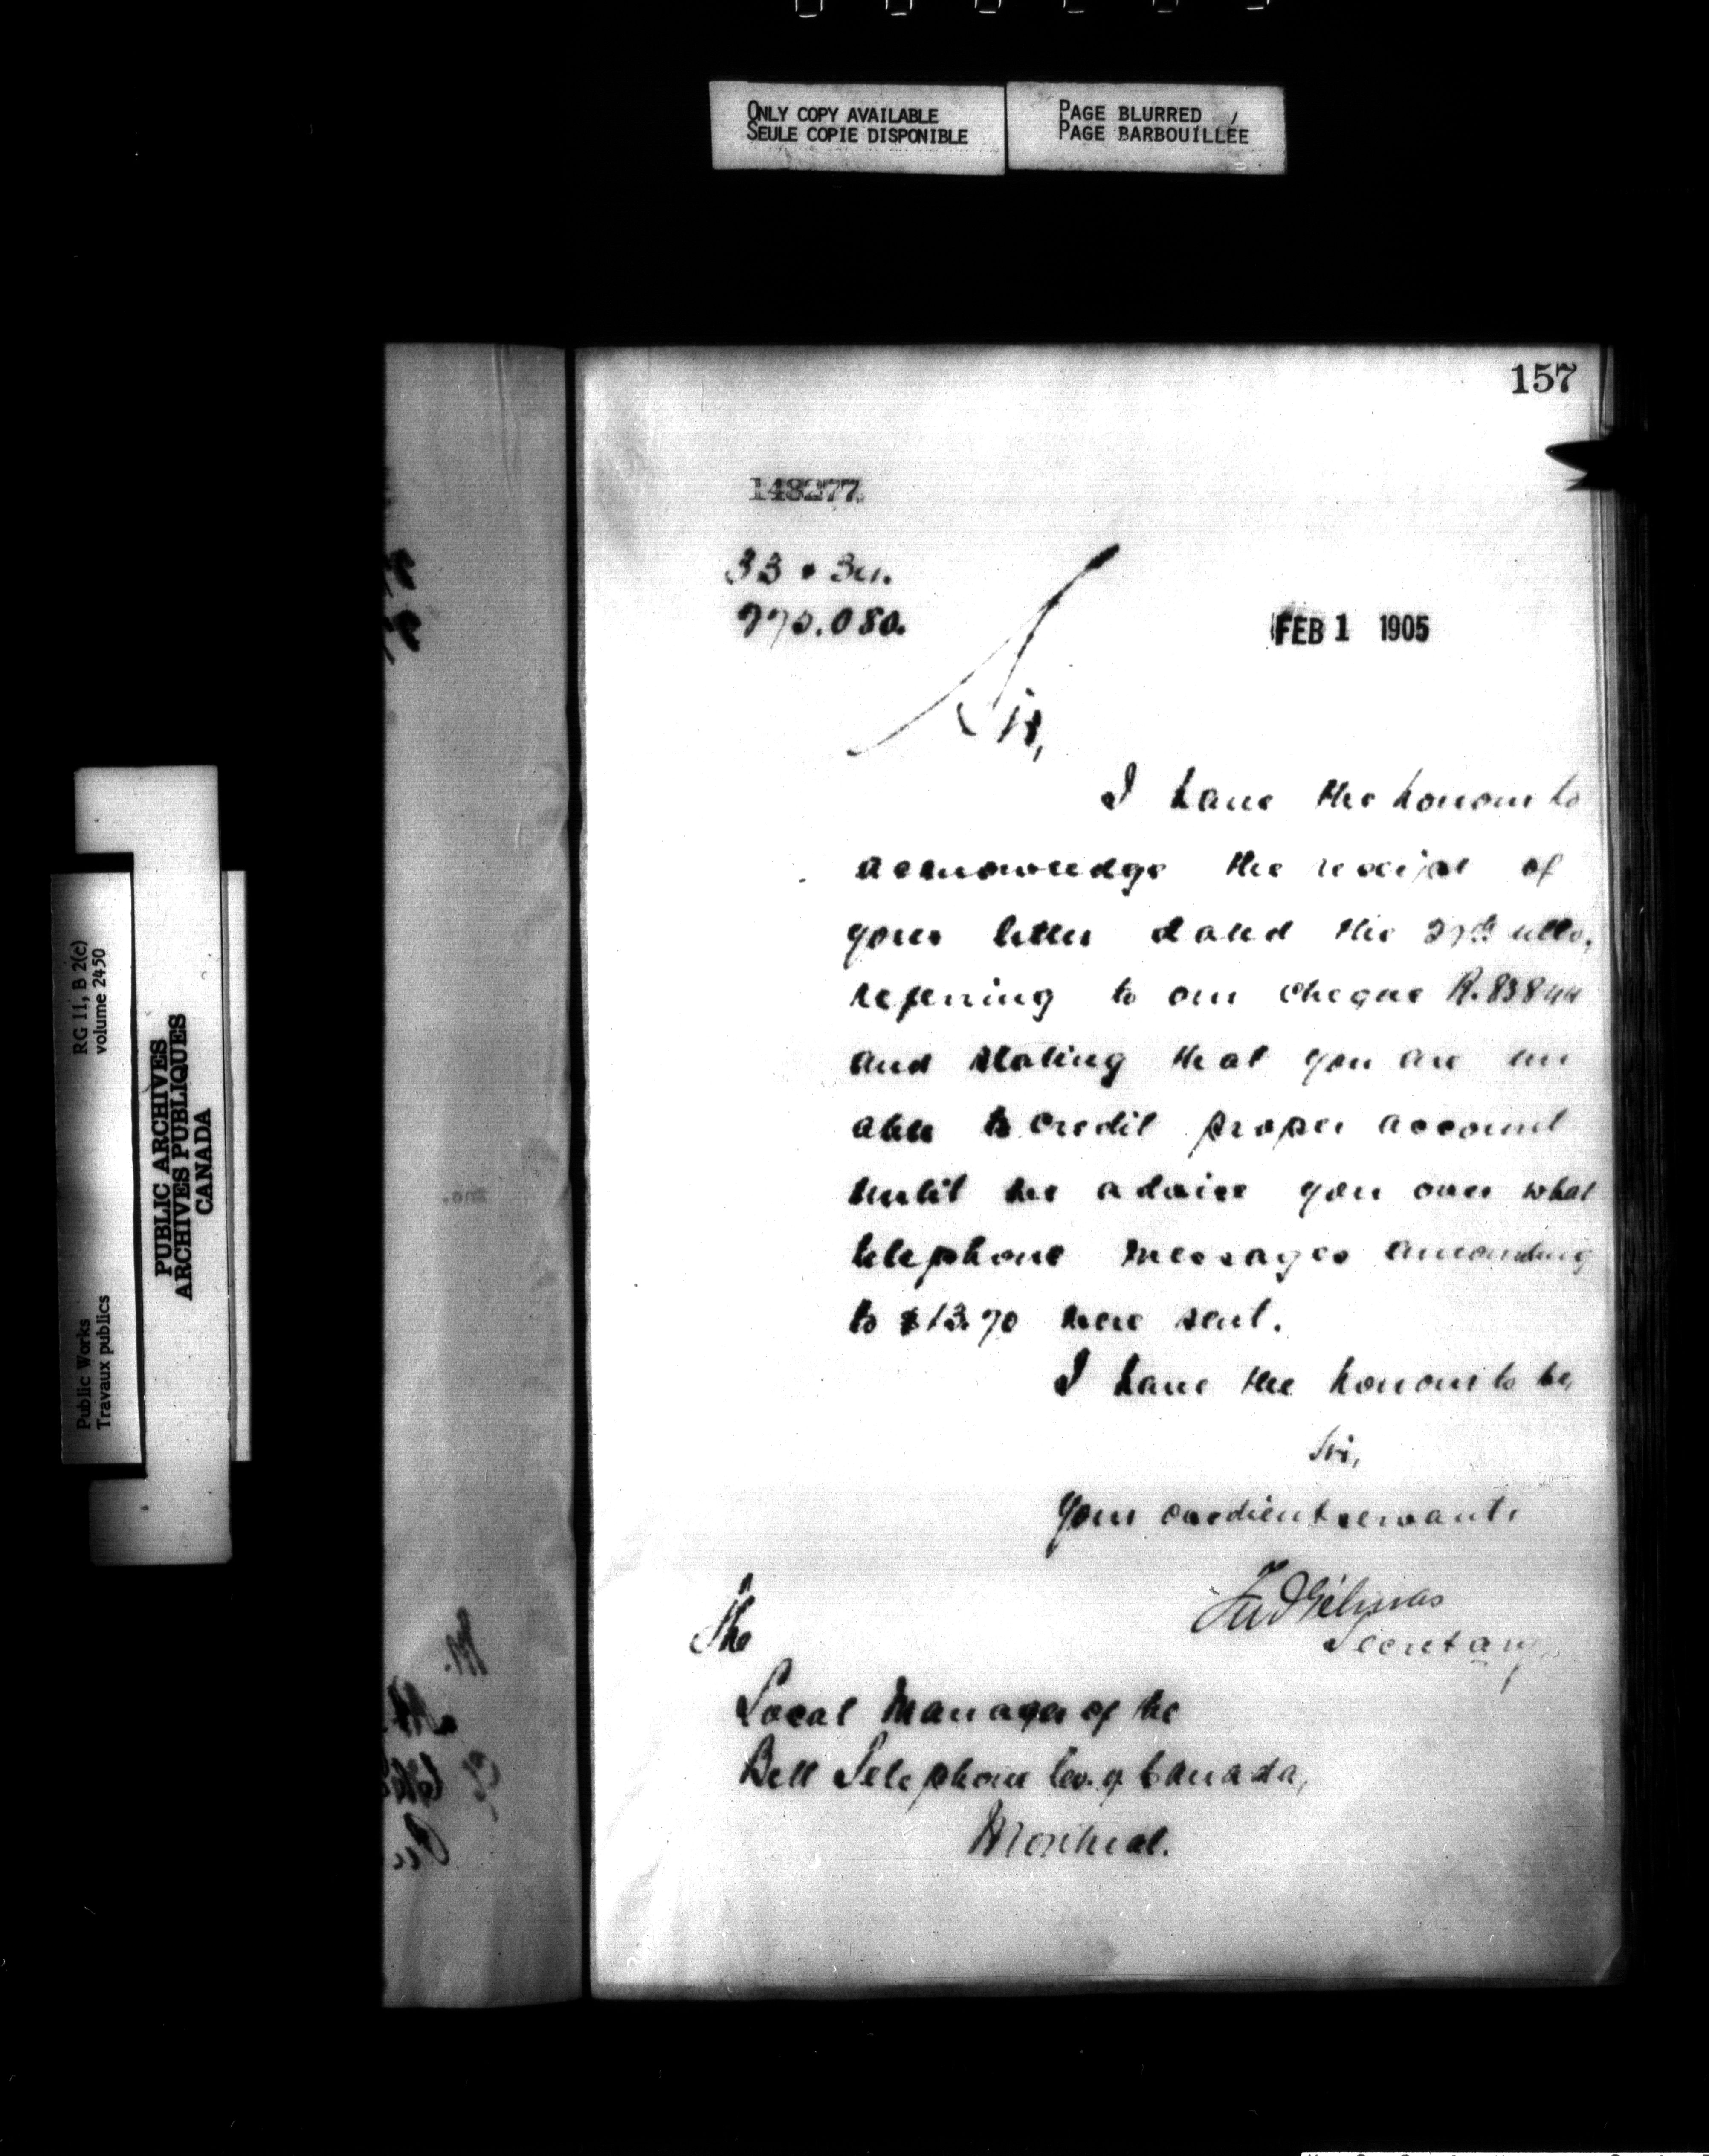 ONLY COPY AVAILABLE
SEULE COPIE DISPONIBLE
PAGE BLURRED
PAGE BARBOUILLÉE
RG 11, B 2(c)
volume 2450
PUBLIC ARCHIVES
ARCHIVES PUBLIQUES
CANADA
Public Works
Travaux publics
157
148277
FEB 1 1905
Sir,
I have the honour to
acknowledge the receipt of
your letter dated the 27th ulto,
referring to our cheque R. 83844
and stating that you are un
able to credit proper account
until we advise you over what
telephone messages amounting
to $13.70 were sent.
I have the honour to be,
Sir,
Your obedient servant,
Secretary.
The
Local Manager of the
Bell Telephone Co. of Canada,
Montreal.